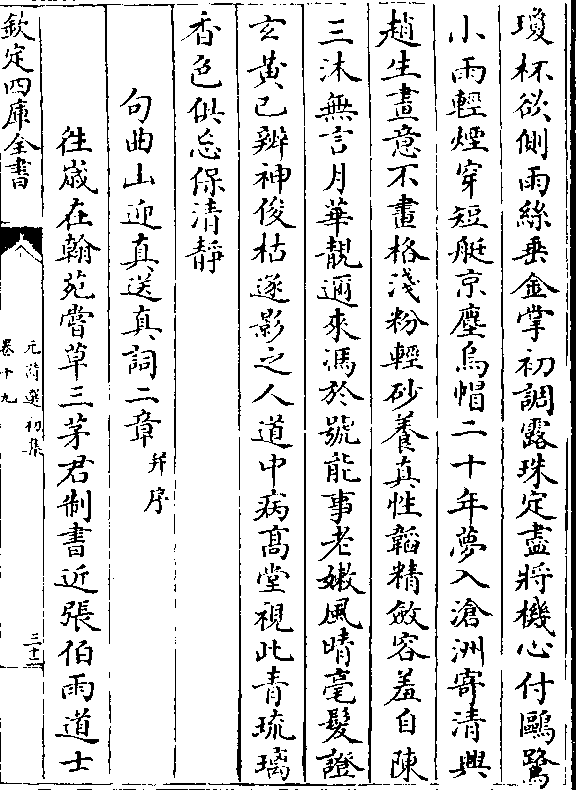 瓊杯欲側雨絲垂金掌初調露珠定盡將機心付鷗鷺
小雨輕煙穿短艇京塵烏帽二十年夢入滄洲寄清興
趙生畫意不畫格淺粉輕砂養真性韜精斂容羞自陳
三沐無言月華靚邇來馮於號能事老嫩風晴毫髮證
玄黃已辨神俊枯遂影之人道中病高堂視此青琉璃
香色俱忘保清靜
句曲山迎真送真詞二章并序
徃歲在翰苑嘗草三茅君制書近張伯雨道士
欽定四庫全書
元詩選初集
卷十九
三十二